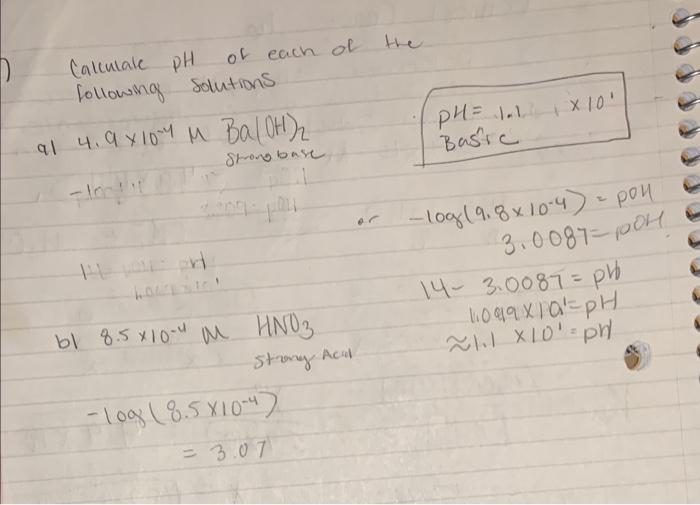 Calculate pH of each of the
following Solutions
a) 4.9 x 10⁻⁴ M Ba(OH)₂
Strong base
pH = 1.1 x 10¹
Basic
or -log(9.8 x 10⁻⁴) = pOH
3.0087 = pOH
14 - 3.0087 = pH
1.099 x 10¹ = pH
≈ 1.1 x 10¹ = pH
b) 8.5 x 10⁻⁴ M HNO₃
Strong Acid
-log(8.5 x 10⁻⁴)
= 3.07